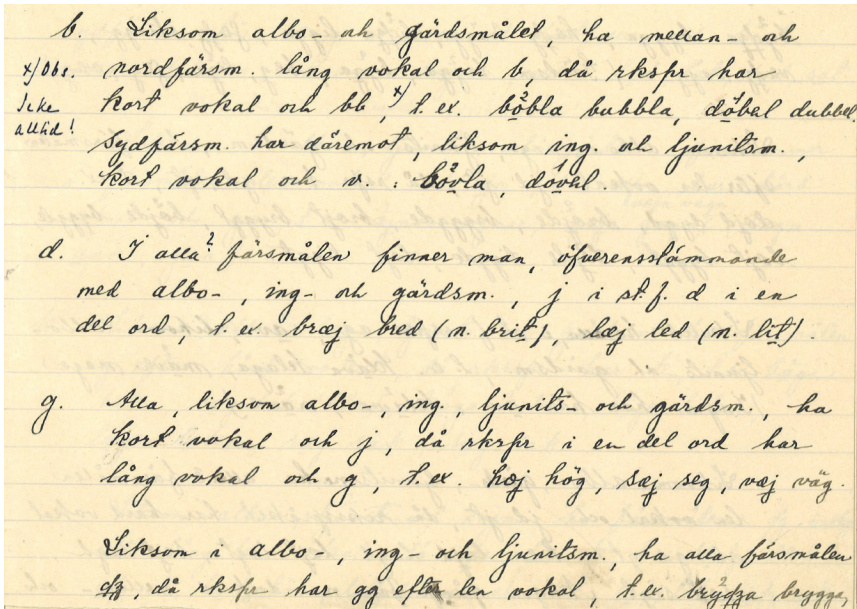 b. Liksom albo- och gärdsmålet, ha mellan- och
x/ Obs. nordfärsm. lång vokal och b, då rkspr har
Icke kort vokal och bb x/, t. ex. bö²bla bubbla, dö¹bel dubbel.
alltid! Sydfärsm. har däremot, liksom ing. och ljunitsm.,
kort vokal och v. : bö²vla, dö¹vel.
d. I alla? färsmålen finner man, öfverensstämmande
med albo-, ing- och gärdsm., j i st. f. d i en
del ord, t. ex. bræj bred (n. brit), læj led (n. lit).
g. Alla, liksom albo-, ing., ljunits- och gärdsm., ha
kort vokal och j, då rkspr i en del ord har
lång vokal och g, t. ex. hœj hög, sæj seg, væj väg.
Liksom i albo-, ing- och ljunitsm., ha alla färsmålen
då rkspr har gg efter len vokal, t. ex. brygga,